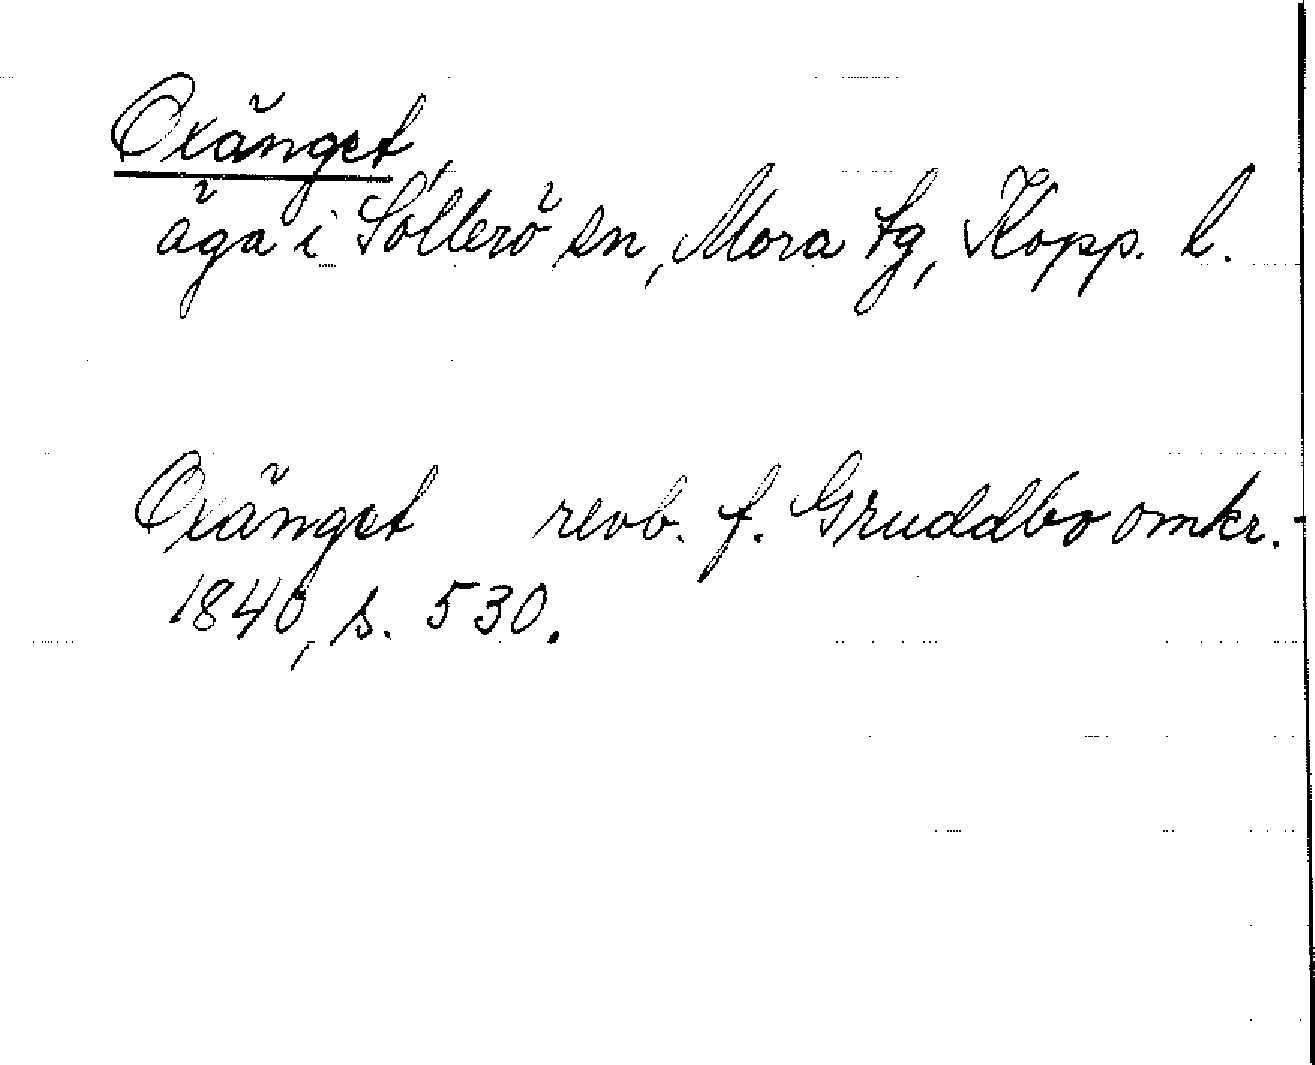 Oxänget
äga i Sollerö sn, Mora tg, Kopp. l.
Oxänget revb. f. Gruddbo omkr.
1840, s. 530.